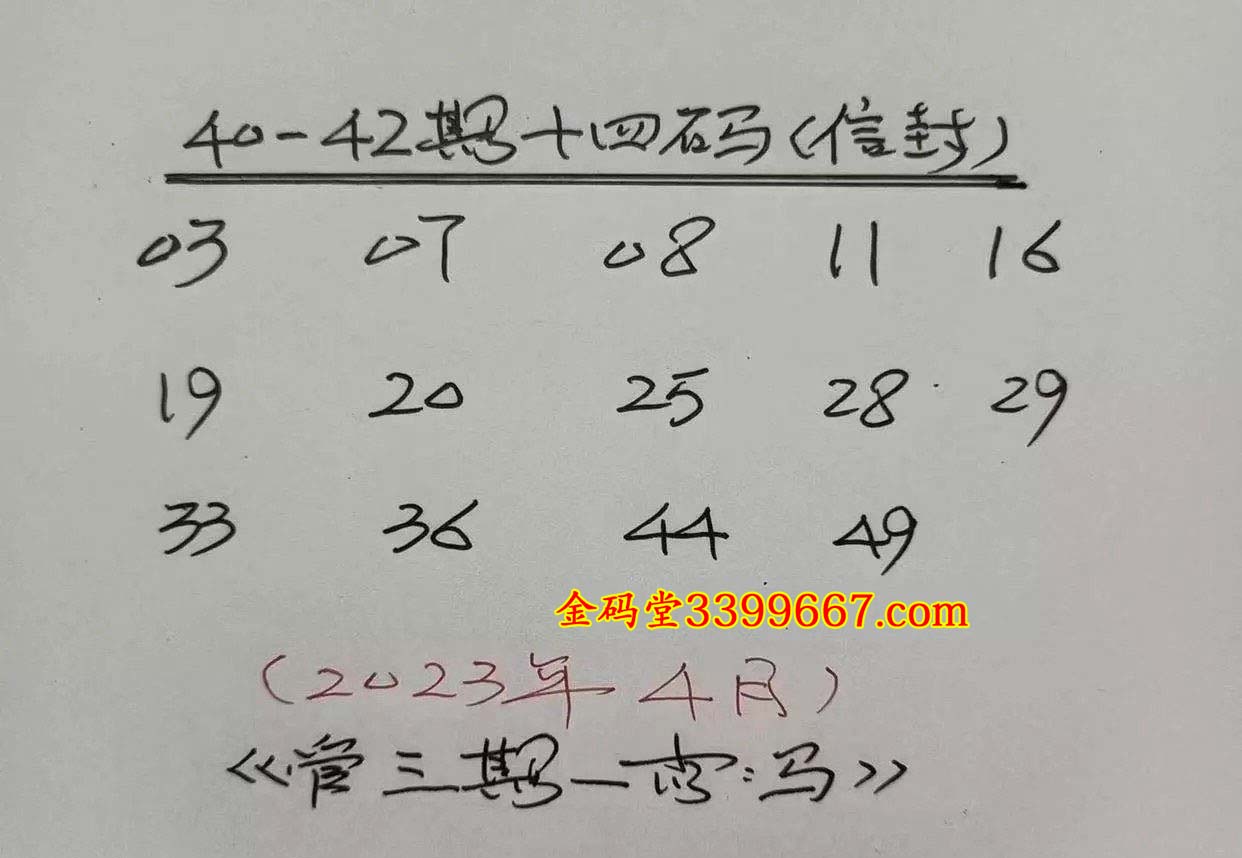 40-42期十四码(信封)
03 07 08 11 16
19 20 25 28 29
33 36 44 49
金码堂3399667.com
(2023年4月)
《管三期一肖:马》